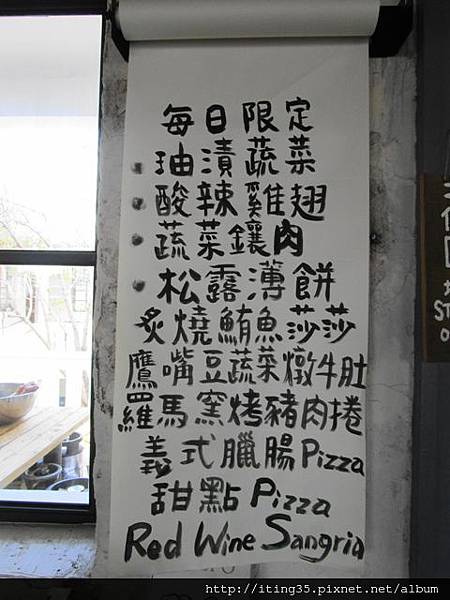 每日限定
油漬蔬菜
酸辣雞翅
蔬菜鑲肉
松露薄餅
炙燒鮪魚莎莎
鷹嘴豆蔬菜燉牛肚
羅馬窯烤豬肉捲
義式臘腸Pizza
甜點Pizza
Red Wine Sangria
ST
http://iting35.pixnet.net/album